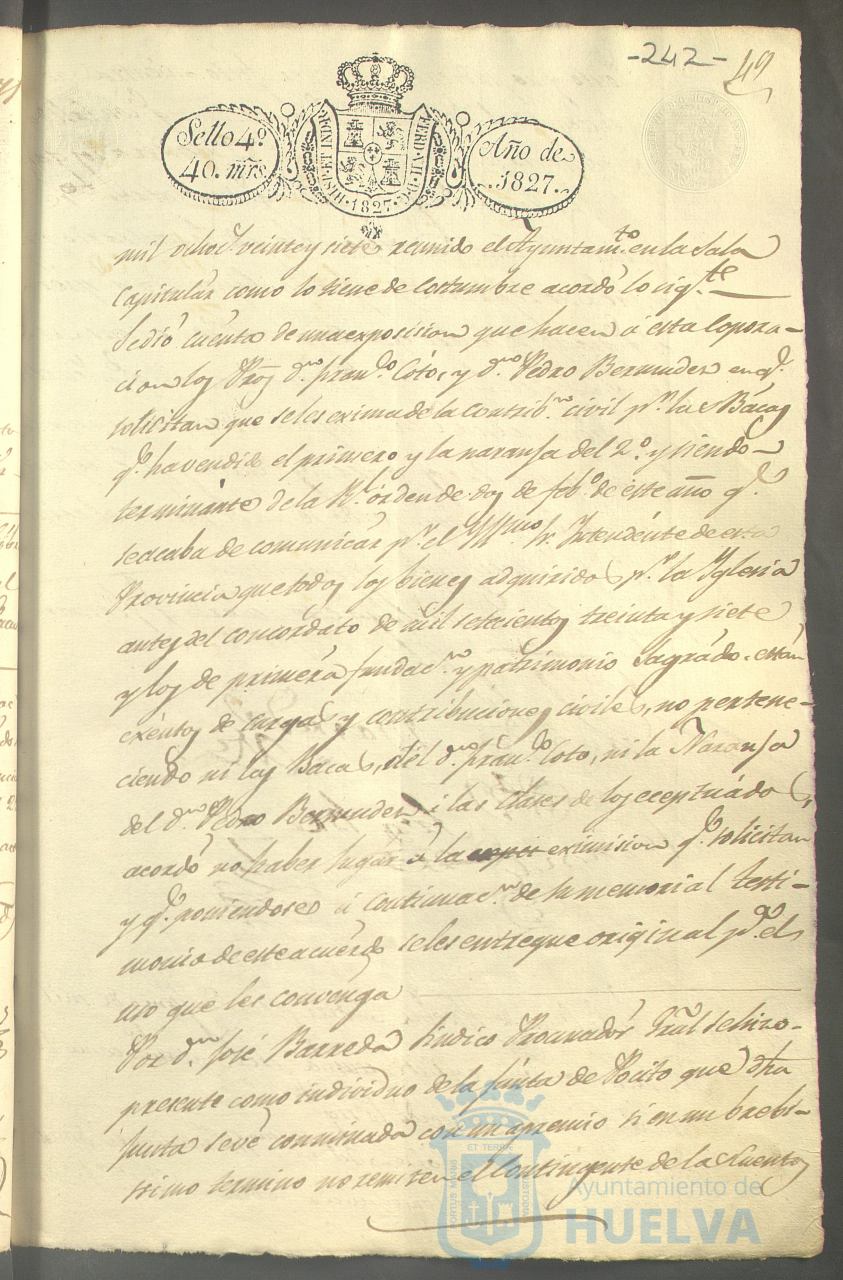 -242-
49
Sello 4º
40. mrs
FERD. VII. D. G. HISP. ET IND. R.
1827
Año de
1827.
mil ochoc.s veinte y siete reunido el Ayuntam.to en la Sala
Capitular como lo tiene de costumbre acordó lo sig.te
Se dió cuenta de una exposision que hacen á esta Copora-
cion los d.n fran.co Coto, y d.n Pedro Bermudez en q.e
solicitan que se les exima de la contrib.n civil p.r las Bacas
q.e ha vendido el primero y la naranja del 2.º y siendo
terminante de la R.l órden de dos de feb.o de este año q.e
se acaba de comunicar p.r el Sr. Intendente de esta
Provincia que todos los bienes adquiridos p.r la Yglesia
antes del concordato de mil setecientos treinta y siete
y los de primera fundac.n y patrimonio sagrado están
exéntos de cargas y contribuciones civiles, no pertene-
ciendo ni las Bacas, del d.n fran.co Coto, ni la Naranja
del d.n Pedro Bermudez á las clases de los eceptuádos,
acordó no haber lugar á la eximision q.e solicitan
y q.e poniendose á continuac.n de su memorial testi-
monio de este acuerdo se les entregue original p.a el
uso que les convenga
Por d.n José Barreda Sindico Procurador Gral se hizo
presente como individuo de la Junta de Pocito que dha
Junta se vé conminada con un apremio si en un brebi-
simo termino no remiten el Contingente de las Cuentas
PORTUS MARIS ET TERRE CUSTODIA
Ayuntamiento de
HUELVA